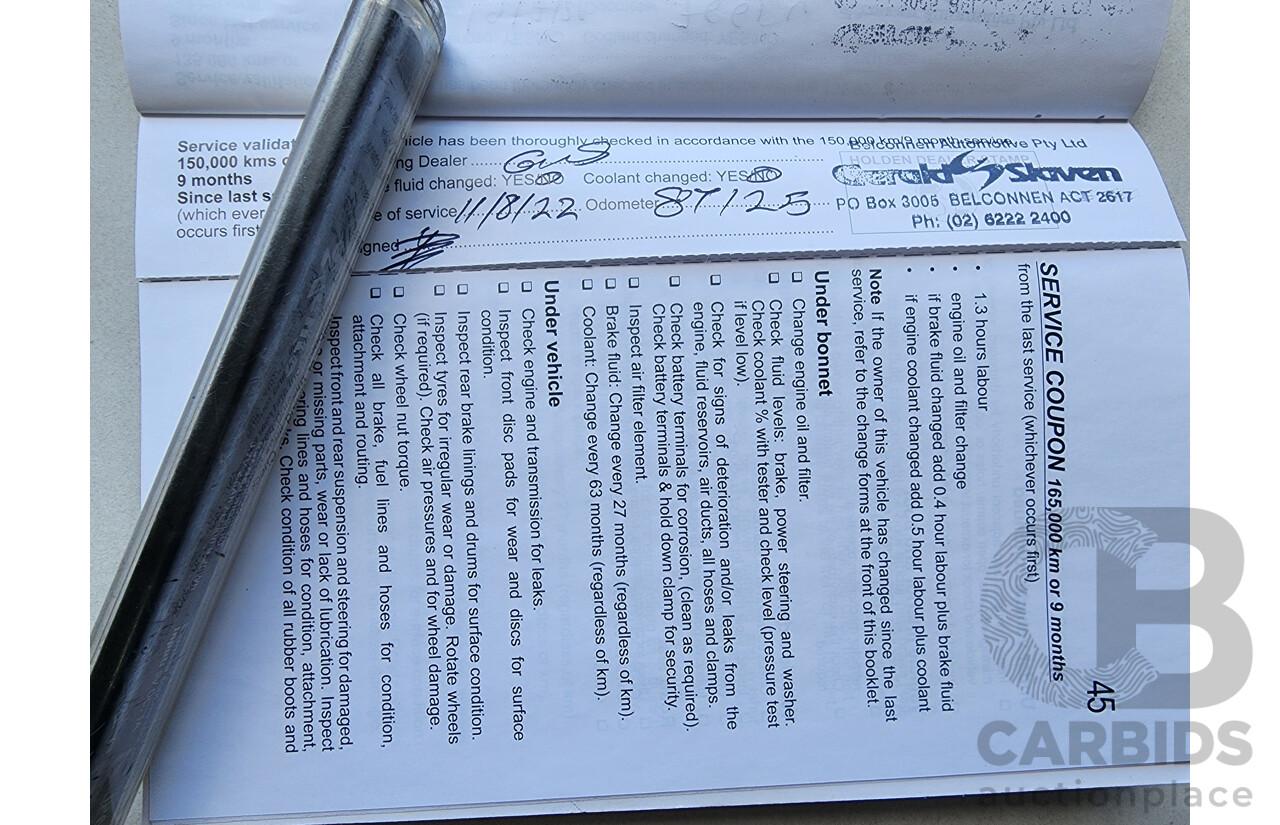 Service validat
150,000 kms o
9 months
Since last s
(which ever
occurs first
hicle has been thoroughly checked in accordance with the 150,000 km/9 month service
ng Dealer GWS
fluid changed: YES/NO Coolant changed: YES/NO
e of service 11/8/22 Odometer 87125
gned
Belconnen Automotive Pty Ltd
HOLDEN DEALER STAMP
Gerald Slaven
PO Box 3005 BELCONNEN ACT 2617
Ph: (02) 6222 2400
45
SERVICE COUPON 165,000 km or 9 months
from the last service (whichever occurs first)
• 1.3 hours labour
• engine oil and filter change
• if brake fluid changed add 0.4 hour labour plus brake fluid
• if engine coolant changed add 0.5 hour labour plus coolant
Note If the owner of this vehicle has changed since the last
service, refer to the change forms at the front of this booklet.
Under bonnet
❑ Change engine oil and filter.
❑ Check fluid levels: brake, power steering and washer.
Check coolant % with tester and check level (pressure test
if level low).
❑ Check for signs of deterioration and/or leaks from the
engine, fluid reservoirs, air ducts, all hoses and clamps.
❑ Check battery terminals for corrosion, (clean as required).
Check battery terminals & hold down clamp for security.
❑ Inspect air filter element.
❑ Brake fluid: Change every 27 months (regardless of km).
❑ Coolant: Change every 63 months (regardless of km).
Under vehicle
❑ Check engine and transmission for leaks.
❑ Inspect front disc pads for wear and discs for surface
condition.
❑ Inspect rear brake linings and drums for surface condition.
❑ Inspect tyres for irregular wear or damage. Rotate wheels
(if required). Check air pressures and for wheel damage.
❑ Check wheel nut torque.
❑ Check all brake, fuel lines and hoses for condition,
attachment and routing.
Inspect front and rear suspension and steering for damaged,
or missing parts, wear or lack of lubrication. Inspect
ering lines and hoses for condition, attachment,
s. Check condition of all rubber boots and
CARBIDS
auctionplace